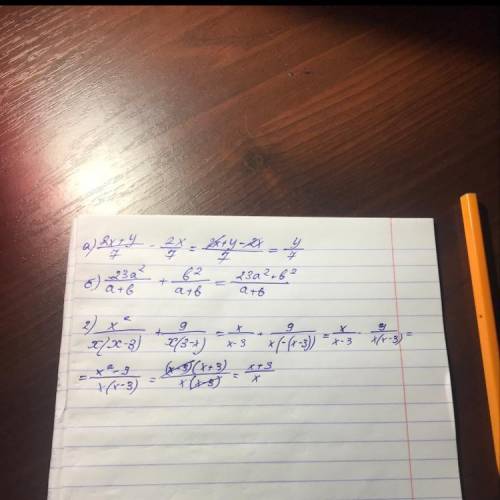 а) (2x+y)/7 - 2x/7 = (2x+y-2x)/7 = y/7
б) 23a²/(a+b) + b²/(a+b) = (23a²+b²)/(a+b)
2) x²/(x(x-3)) + 9/(x(3-x)) = x/(x-3) + 9/(x(-(x-3))) = x/(x-3) - 9/(x(x-3)) =
= (x²-9)/(x(x-3)) = ((x-3)(x+3))/(x(x-3)) = (x+3)/x